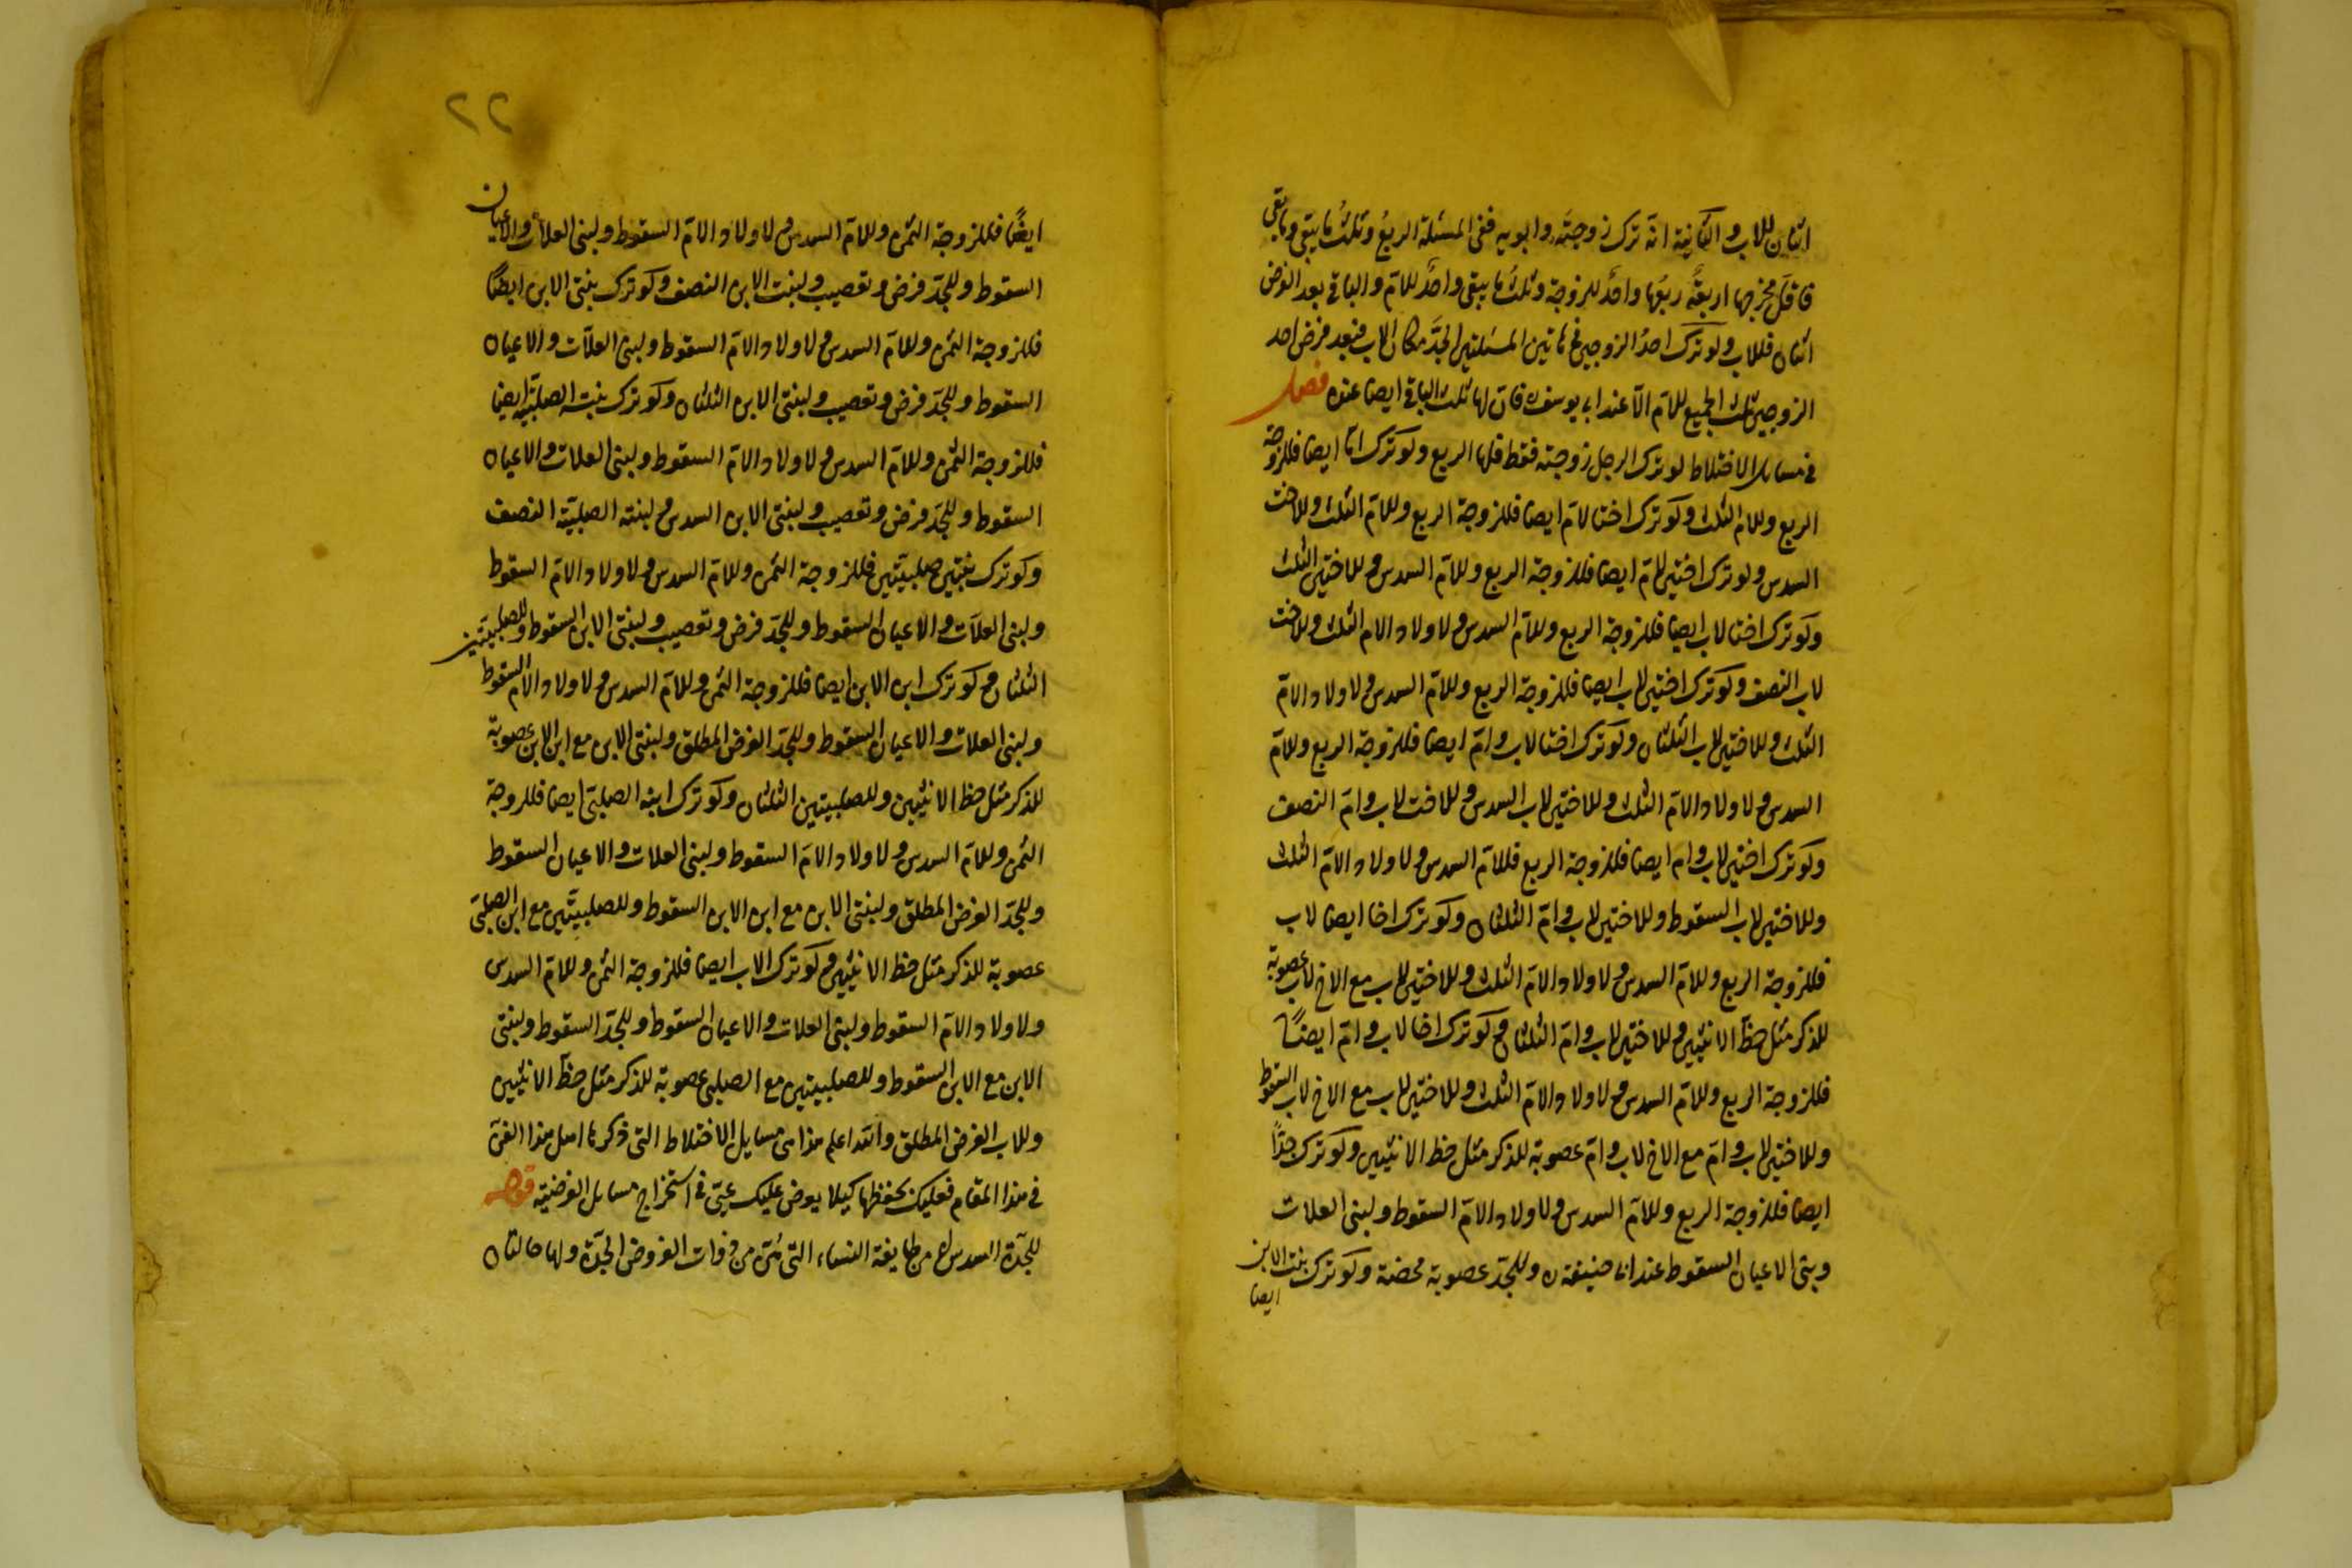 اثنان للاب والثانية انه ترك زوجته وابويه ففى المسئلة الربع وثلث ما يبقى وما بقى
فاقل مخرجها اربعة ربعها واحد للزوجة وثلث ما يبقى واحد للام والباقى بعد الفرض
اثنان فللاب ولو ترك احد الزوجين فى هاتين المسئلتين الجد مكان الاب فبعد فرض احد
الزوجين ثلث الجميع للام الا عند ابى يوسف فان لها ثلث الباقى ايضا عنده فصل
فى مسايل الاختلاط لو ترك الرجل زوجته فقط فلها الربع ولو ترك اما ايضا فللزوجة
الربع وللام الثلث ولو ترك اختا لام ايضا فللزوجة الربع وللام الثلث وللاخت
السدس ولو ترك اختين لام ايضا فللزوجة الربع وللام السدس وللاختين الثلث
ولو ترك اختا لاب ايضا فللزوجة الربع وللام السدس ولاولاد الام الثلث وللاخت
لاب النصف ولو ترك اختين لاب ايضا فللزوجة الربع وللام السدس ولاولاد الام
الثلث وللاختين لاب الثلثان ولو ترك اختا لاب وام ايضا فللزوجة الربع وللام
السدس ولاولاد الام الثلث وللاختين لاب السدس وللاخت لاب وام النصف
ولو ترك اختين لاب وام ايضا فللزوجة الربع فللام السدس ولاولاد الام الثلث
وللاختين لاب السقوط وللاختين لاب وام الثلثان ولو ترك اخا ايضا لاب
فللزوجة الربع وللام السدس ولاولاد الام الثلث وللاختين لاب مع الاخ لاب عصوبة
للذكر مثل حظ الانثيين وللاختين لاب وام الثلثان ولو ترك اخا لاب وام ايضًا
فللزوجة الربع وللام السدس ولاولاد الام الثلث وللاختين لاب مع الاخ لاب السقوط
وللاختين لاب وام مع الاخ لاب وام عصوبة للذكر مثل حظ الانثيين ولو ترك جدًا
ايضا فللزوجة الربع وللام السدس ولاولاد الام السقوط ولبنى العلات
وبنى الاعيان السقوط عند ابى حنيفة وللجد عصوبة محضة ولو ترك بنت الابن
ايضا
٢٢
ايضًا فللزوجة الثمن وللام السدس ولاولاد الام السقوط ولبنى العلات والاعيان
السقوط وللجد فرض وتعصيب ولبنت الابن النصف ولو ترك بنتى الابن ايضًا
فللزوجة الثمن وللام السدس ولاولاد الام السقوط ولبنى العلات والاعيان
السقوط وللجد فرض وتعصيب ولبنتى الابن الثلثان ولو ترك بنته الصلبية ايضا
فللزوجة الثمن وللام السدس ولاولاد الام السقوط ولبنى العلات والاعيان
السقوط وللجد فرض وتعصيب ولبنتى الابن السدس ولبنته الصلبية النصف
ولو ترك بنتين صلبيتين فللزوجة الثمن وللام السدس ولاولاد الام السقوط
ولبنى العلات والاعيان السقوط وللجد فرض وتعصيب ولبنتى الابن السقوط وللصلبيتين
الثلثان ولو ترك ابن الابن ايضا فللزوجة الثمن وللام السدس ولاولاد الام السقوط
ولبنى العلات والاعيان السقوط وللجد الفرض المطلق ولبنتى الابن مع ابن الابن عصوبة
للذكر مثل حظ الانثيين وللصلبيتين الثلثان ولو ترك ابنه الصلبى ايضا فللزوجة
الثمن وللام السدس ولاولاد الام السقوط ولبنى العلات والاعيان السقوط
وللجد الفرض المطلق ولبنتى الابن مع ابن الابن السقوط وللصلبيتين مع ابن الصلبى
عصوبة للذكر مثل حظ الانثيين ولو ترك الاب ايضا فللزوجة الثمن وللام السدس
ولاولاد الام السقوط ولبنى العلات والاعيان السقوط وللجد السقوط ولبنتى
الابن مع الابن السقوط وللصلبيتين مع الصلبى عصوبة للذكر مثل حظ الانثيين
وللاب الفرض المطلق والله اعلم هذا من مسايل الاختلاط التى ذكرها اهل هذا الفن
فى هذا المقام فعليك بحفظها كيلا يعوض عليك فى استخراج مسايل الفرضية قوله
للجدة السدس من طايفة النساء التى هن من ذوات الفروض الجدة ولها حالتان